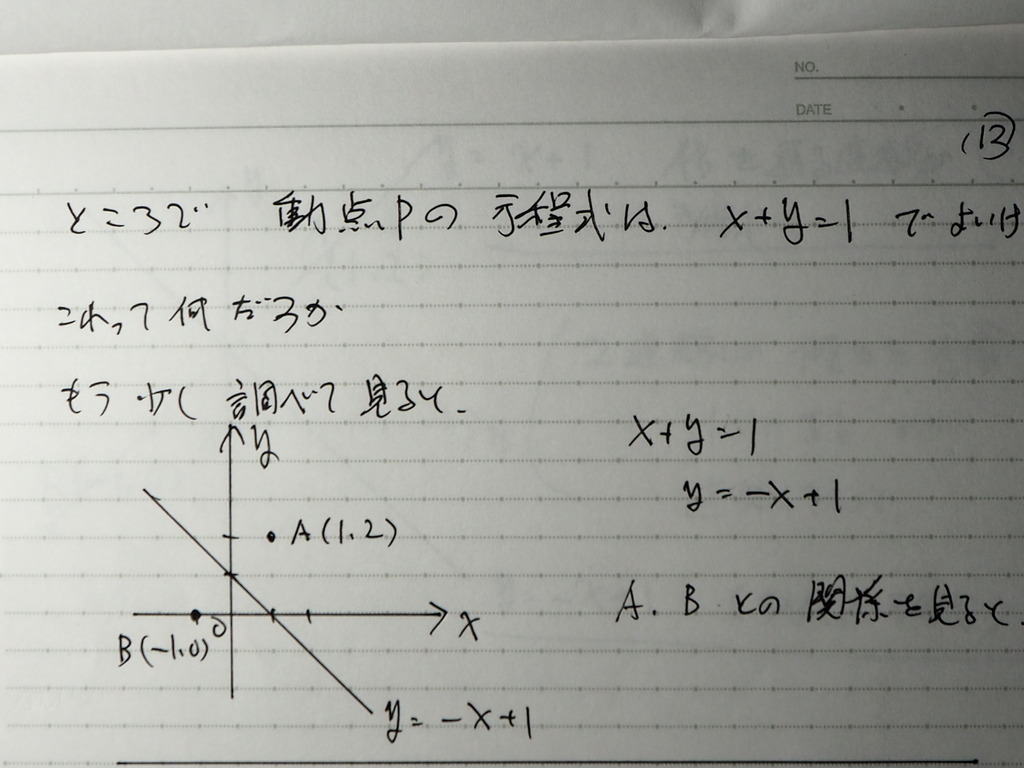 NO.
DATE
⑬
ところで 動点Pの方程式は. x+y=1 でよいけ
これって何だろか
もう少し調べて見ると.
y
x+y=1
y=-x+1
A(1,2)
A. B との関係を見ると.
O
x
B(-1,0)
y=-x+1